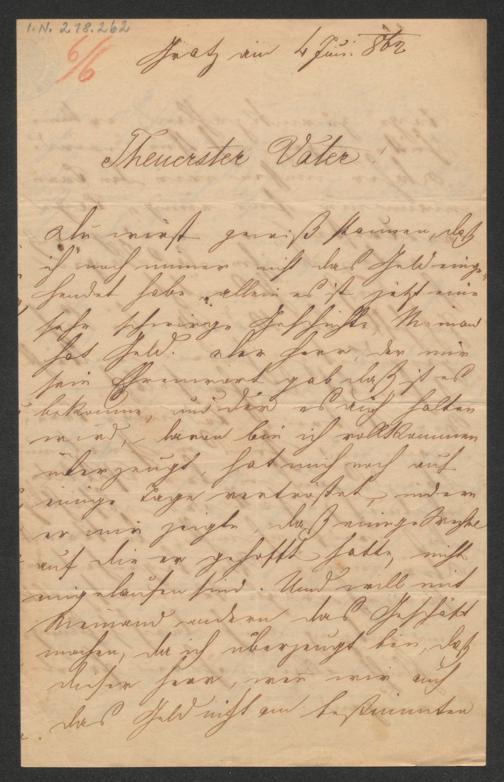 I.N. 218.262
6/6
Gratz am 4 Juni 862
Theuerster Vater
Du wirst gewiß staunen, daß
ich noch immer nicht das Geld einge-
sendet habe, allein es ist jetzt eine
sehr schwierige Geschichte. Niemand
hat Geld. Der Herr, der mir
sein Ehrenwort gab daß ich es
bekomme, und der es auch halten
wird, davon bin ich vollkommen
überzeugt hat mich noch auf
einige Tage vertröstet, indem
er mir zeigte, daß einige Wechsel
auf die er gehofft hatte, nicht
eingelaufen sind. Und will mit
Niemand andern das Geschäft
machen, da ich überzeugt bin, daß
dieser Herr, wenn wir auch
das Geld nicht am bestimmten